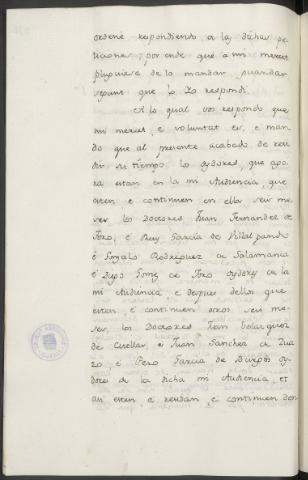 ordené respondiendo a las dichas pe-
ticiones; por ende que a mi merced
pluguiese de lo mandar guardar
segunt que lo Yo respondí.
A lo qual vos respondo que
mi merced, e voluntat es, e man-
do que al presente acabado de
su tiempo los oydores, que ago-
ra estan en la mi Audiencia, que
esten e continuen en ella seis me-
ses los Doctores Juan Fernandez de
Toro, é Ruy Garcia de Villalpando
é Gonzalo Rodriguez de Salamanca
é Diego Gomez de Toro oydores de la
mi Audiencia e despues dellos que
estan, é continuen otros seis me-
ses, los Doctores Juan Velazquez
de Cuellar, e Juan Sanchez de Zua-
zo, é Pero Garcia de Burgos oy-
dores de la dicha mi Audiencia, et
asi esten e residan e continuen don